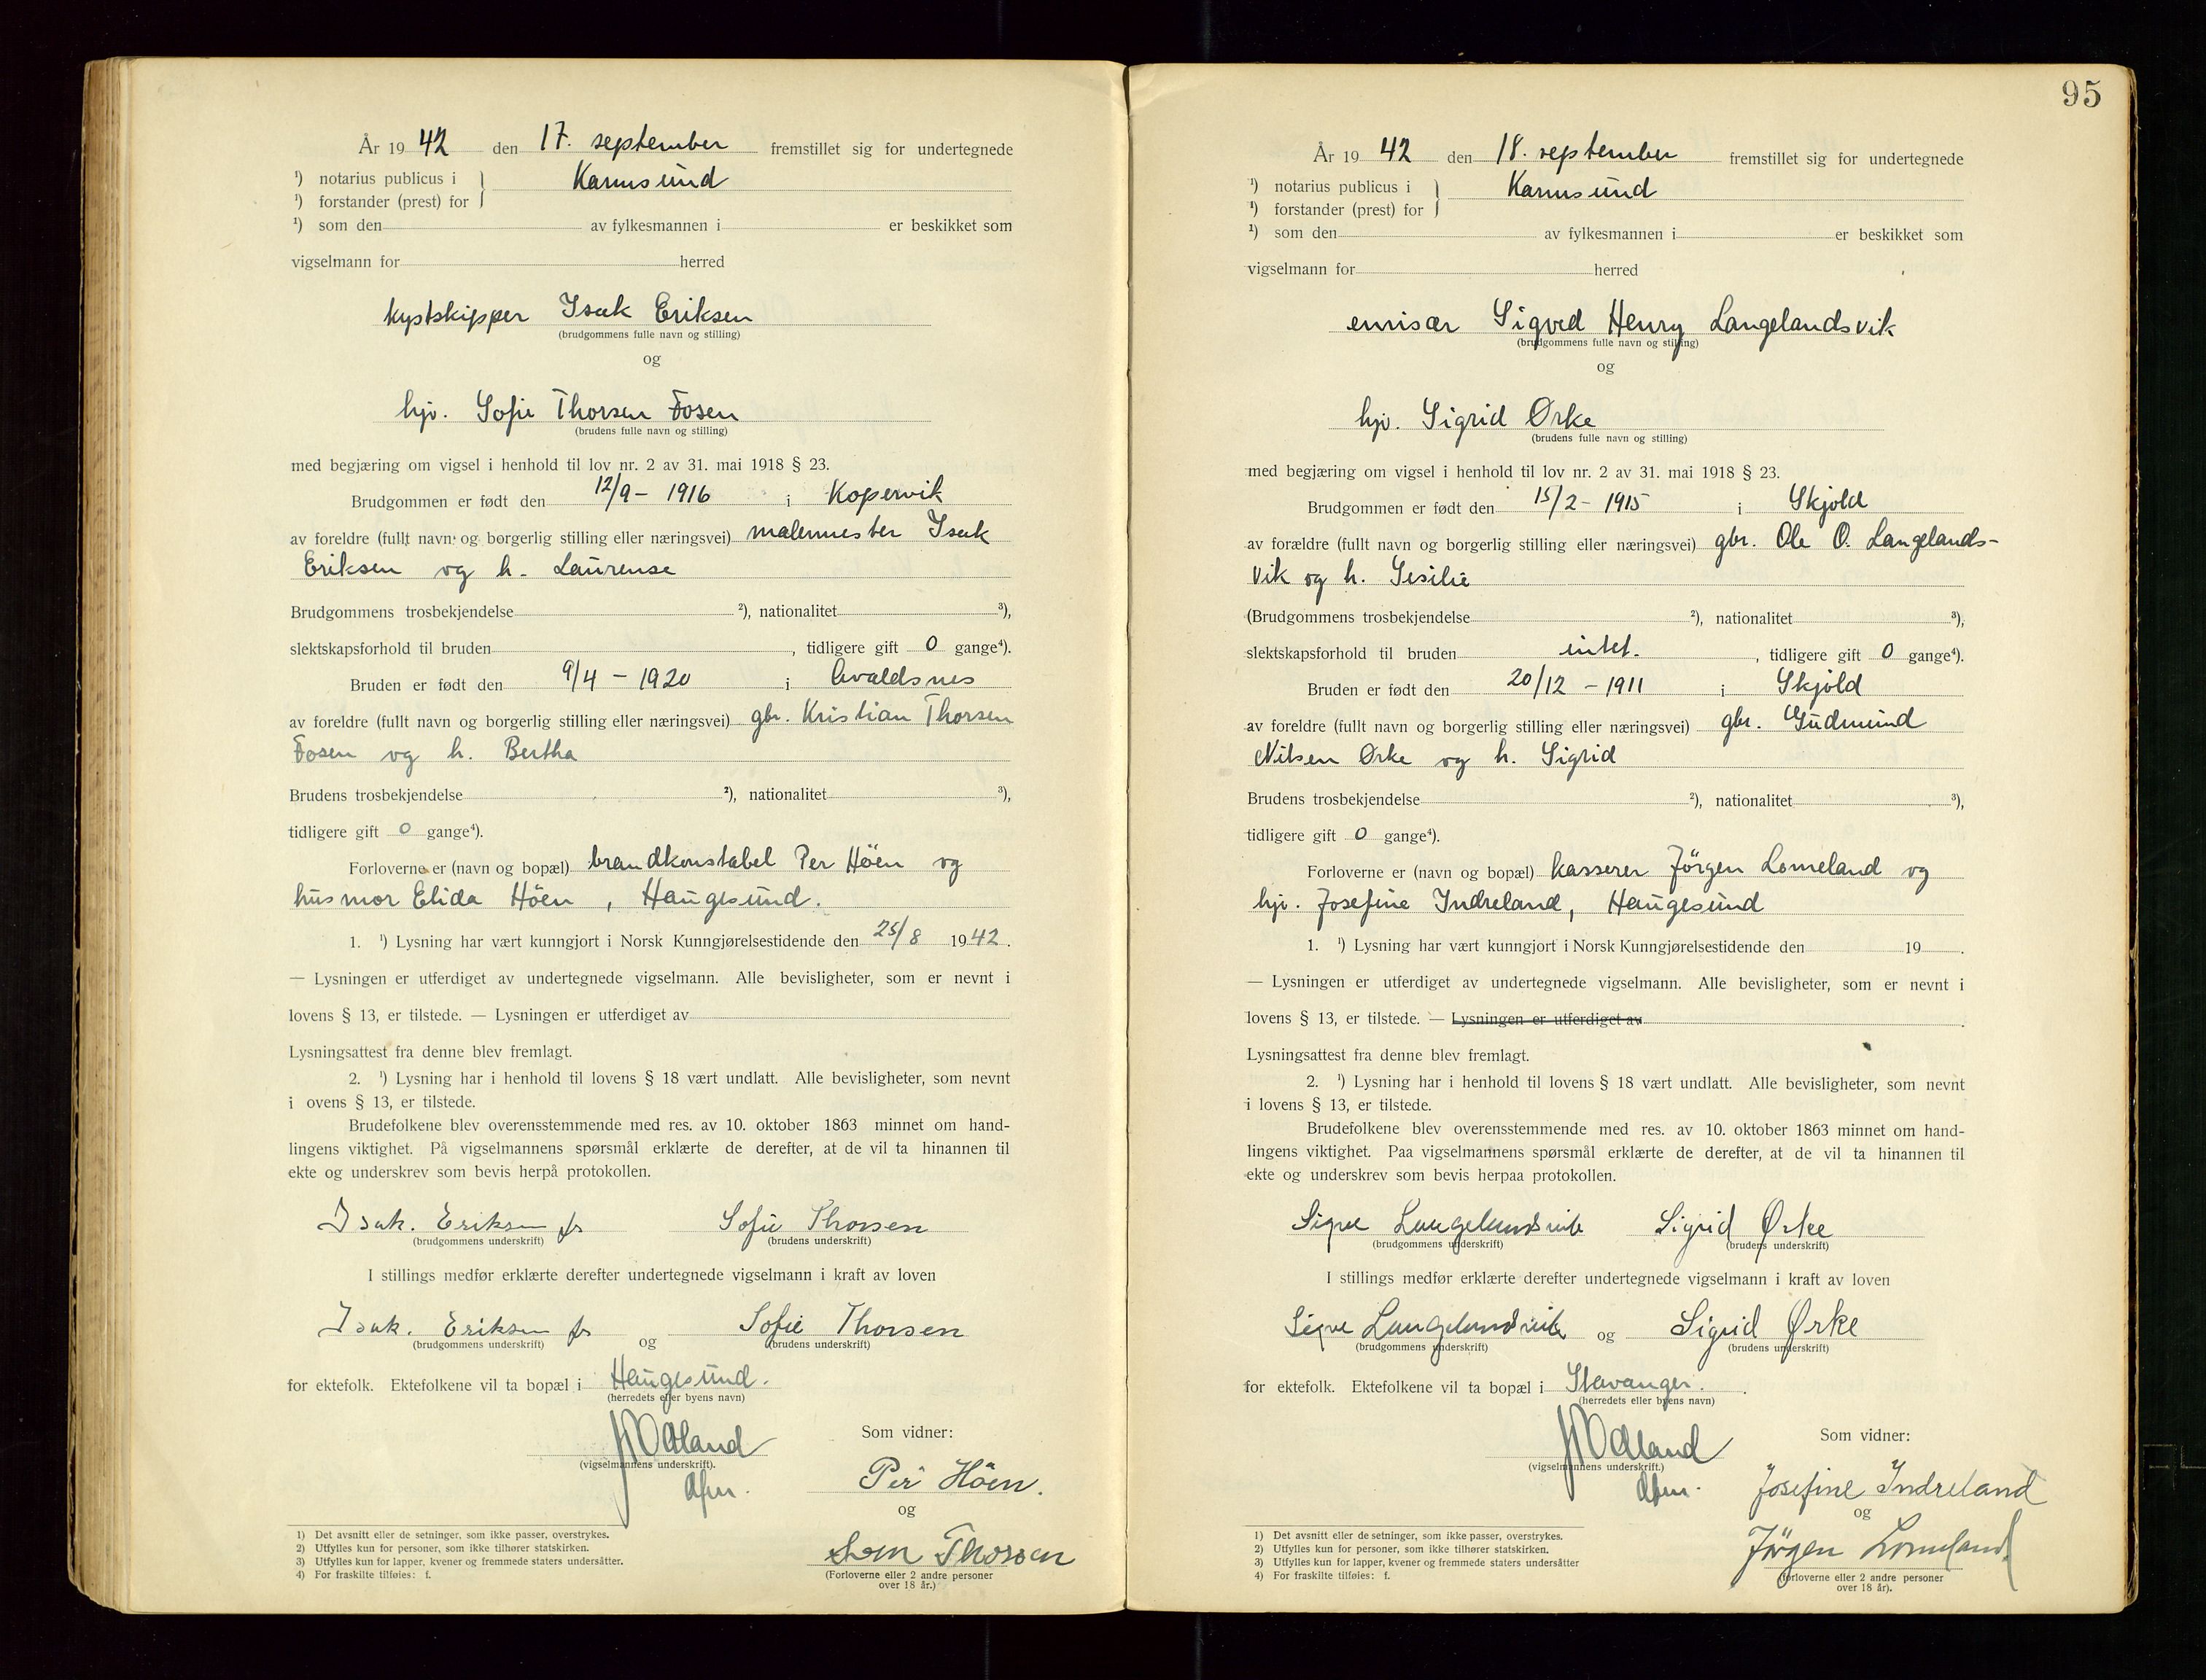 År 19 42 den 17. september fremstillet sig for undertegnede
¹) notarius publicus i } Karmsund
¹) forstander (prest) for
¹) som den av fylkesmannen i er beskikket som
vigselmann for herred
kystskipper Isak Eriksen
(brudgommens fulle navn og stilling)
og
hjv. Sofie Thorsen Fosen
(brudens fulle navn og stilling)
med begjæring om vigsel i henhold til lov nr. 2 av 31. mai 1918 § 23.
Brudgommen er født den 12/9 - 1916 i Kopervik
av foreldre (fullt navn og borgerlig stilling eller næringsvei) malermester Isak
Eriksen og h. Laurense
Brudgommens trosbekjendelse ²), nationalitet ³),
slektskapsforhold til bruden , tidligere gift 0 gange⁴).
Bruden er født den 9/4 - 1920 i Avaldsnes
av foreldre (fullt navn og borgerlig stilling eller næringsvei) gbr. Kristian Thorsen
Fosen og h. Bertha
Brudens trosbekjendelse ²), nationalitet ³),
tidligere gift 0 gange⁴).
Forloverne er (navn og bopæl) brandkonstabel Per Höen og
husmor Elida Höen, Haugesund.
1. ¹) Lysning har vært kunngjort i Norsk Kunngjørelsestidende den 25/8 1942.
— Lysningen er utferdiget av undertegnede vigselmann. Alle bevisligheter, som er nevnt i
lovens § 13, er tilstede. — Lysningen er utferdiget av
Lysningsattest fra denne blev fremlagt.
2. ¹) Lysning har i henhold til lovens § 18 vært undlatt. Alle bevisligheter, som nevnt
i ovens § 13, er tilstede.
Brudefolkene blev overensstemmende med res. av 10. oktober 1863 minnet om hand-
lingens viktighet. På vigselmannens spørsmål erklærte de derefter, at de vil ta hinannen til
ekte og underskrev som bevis herpå protokollen.
Isak. Eriksen jr Sofie Thorsen
(brudgommens underskrift) (brudens underskrift)
I stillings medfør erklærte derefter undertegnede vigselmann i kraft av loven
Isak. Eriksen jr og Sofie Thorsen
(brudgommens underskrift) (brudens underskrift)
for ektefolk. Ektefolkene vil ta bopæl i Haugesund.
(herredets eller byens navn)
Ødland Som vidner:
(vigselmannens underskrift).
Per Höen.
og
Thorsen
(Forloverne eller 2 andre personer
over 18 år.)
1) Det avsnitt eller de setninger, som ikke passer, overstrykes.
2) Utfylles kun for personer, som ikke tilhører statskirken.
3) Utfylles kun for lapper, kvener og fremmede staters undersåtter.
4) For fraskilte tilføies: f.
95
År 19 42 den 18. september fremstillet sig for undertegnede
¹) notarius publicus i } Karmsund
¹) forstander (prest) for
¹) som den av fylkesmannen i er beskikket som
vigselmann for herred
emisær Sigved Henry Langelandsvik
(brudgommens fulle navn og stilling)
og
hjv. Sigrid Ørke
(brudens fulle navn og stilling)
med begjæring om vigsel i henhold til lov nr. 2 av 31. mai 1918 § 23.
Brudgommen er født den 15/2 - 1915 i Skjold
av forældre (fullt navn og borgerlig stilling eller næringsvei) gbr. Ole O. Langelands-
vik og h. Sesilie
(Brudgommens trosbekjendelse ²), nationalitet ³),
slektskapsforhold til bruden intet. , tidligere gift 0 gange⁴).
Bruden er født den 20/12 - 1911 i Skjold
av foreldre (fullt navn og borgerlig stilling eller næringsvei) gbr. Gudmund
Nilsen Ørke og h. Sigrid
Brudens trosbekjendelse ²), nationalitet ³),
tidligere gift 0 gange⁴).
Forloverne er (navn og bopæl) kasserer Jörgen Lomeland og
hjv. Josefine Indreland, Haugesund
1. ¹) Lysning har vært kunngjort i Norsk Kunngjørelsestidende den 19 .
— Lysningen er utferdiget av undertegnede vigselmann. Alle bevisligheter, som er nevnt i
lovens § 13, er tilstede. — Lysningen er utferdiget av
Lysningsattest fra denne blev fremlagt.
2. ¹) Lysning har i henhold til lovens § 18 vært undlatt. Alle bevisligheter, som nevnt
i lovens § 13, er tilstede.
Brudefolkene blev overensstemmende med res. av 10. oktober 1863 minnet om hand-
lingens viktighet. Paa vigselmannens spørsmål erklærte de derefter, at de vil ta hinannen til
ekte og underskrev som bevis herpaa protokollen.
Sigve Langelandsvik Sigrid Ørke
(brudgommens underskrift) (brudens underskrift)
I stillings medfør erklærte derefter undertegnede vigselmann i kraft av loven
Sigve Langelandsvik og Sigrid Ørke
(brudgommens underskrift) (brudens underskrift)
for ektefolk. Ektefolkene vil ta bopæl i Stavanger.
(herredets eller byens navn)
Ødland Som vidner:
(vigselmannens underskrift.)
Josefine Indreland
og
Jörgen Lomeland
(forloverne eller 2 andre personer
over 18 år).
1) Det avsnitt eller de setninger, som ikke passer, overstrykes.
2) Utfylles kun for personer, som ikke tilhører statskirken.
3) Utfylles kun for lapper, kvener og fremmede staters undersåtter
4) For fraskilte tilføies: f.